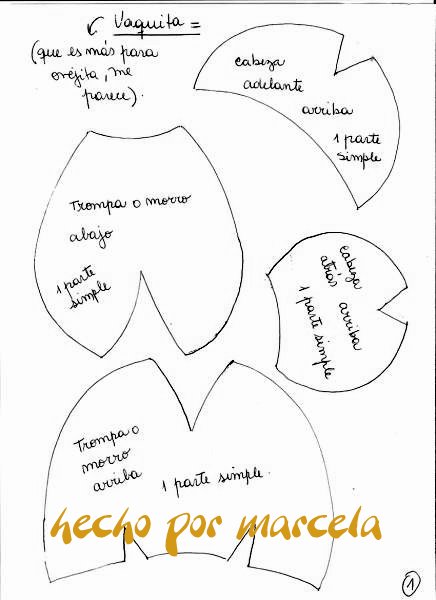 Vaquita =
(que es más para
orejita, me
parece).
cabeza
adelante
arriba
1 parte
simple
Trompa o morro
abajo
1 parte
simple
cabeza
atrás arriba
1 parte simple
Trompa o
morro
arriba
1 parte simple.
hecho por marcela
1